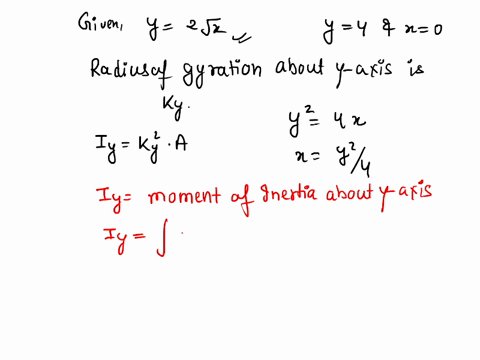 Given, y = 2√x y = 4 & x = 0
Radius of gyration about y-axis is
Ky.
y² = 4x
Iy = Ky² · A
x = y²/4
Iy = moment of Inertia about y-axis
Iy = ∫